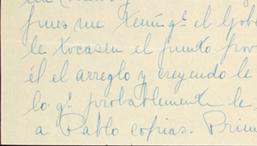 pues me temí qe el Gob
le tocasen el punto pro
él el arreglo y creyendo le
lo qe probablemente le
a Pablo copias.